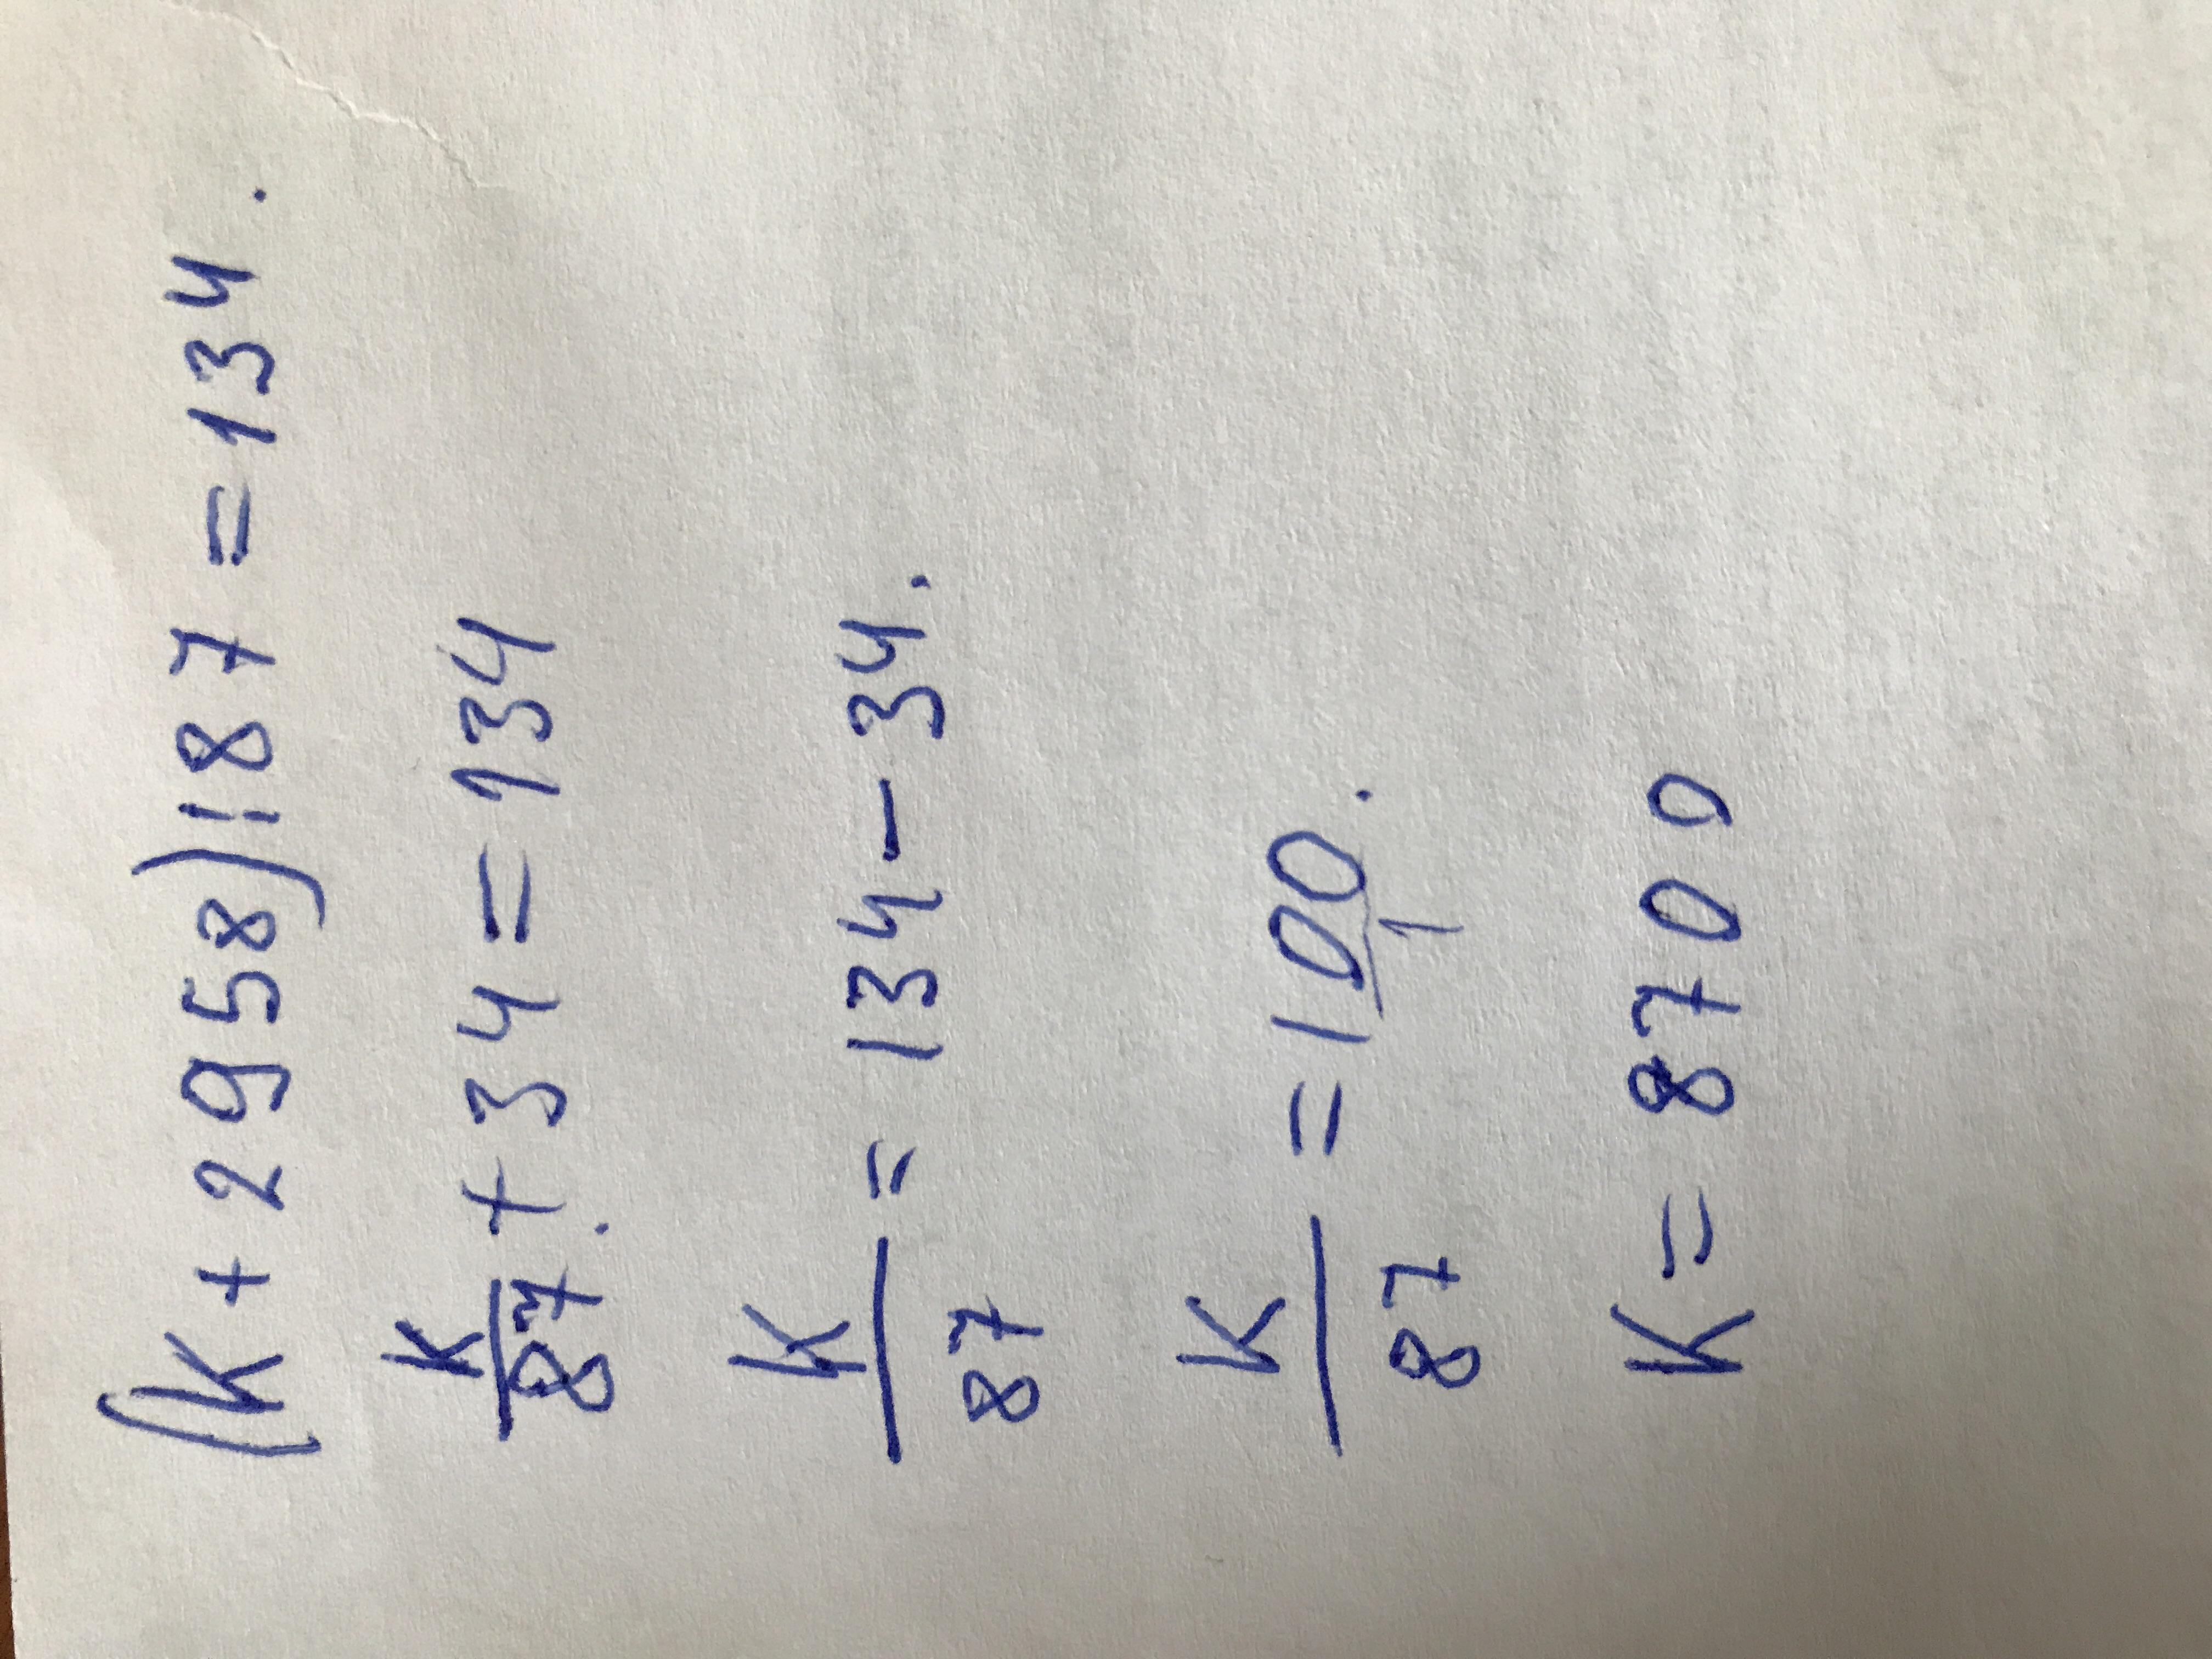 (k + 2958) : 87 = 134.
k/87. + 34 = 134
k/87 = 134 - 34.
k/87 = 100/1.
k = 8700